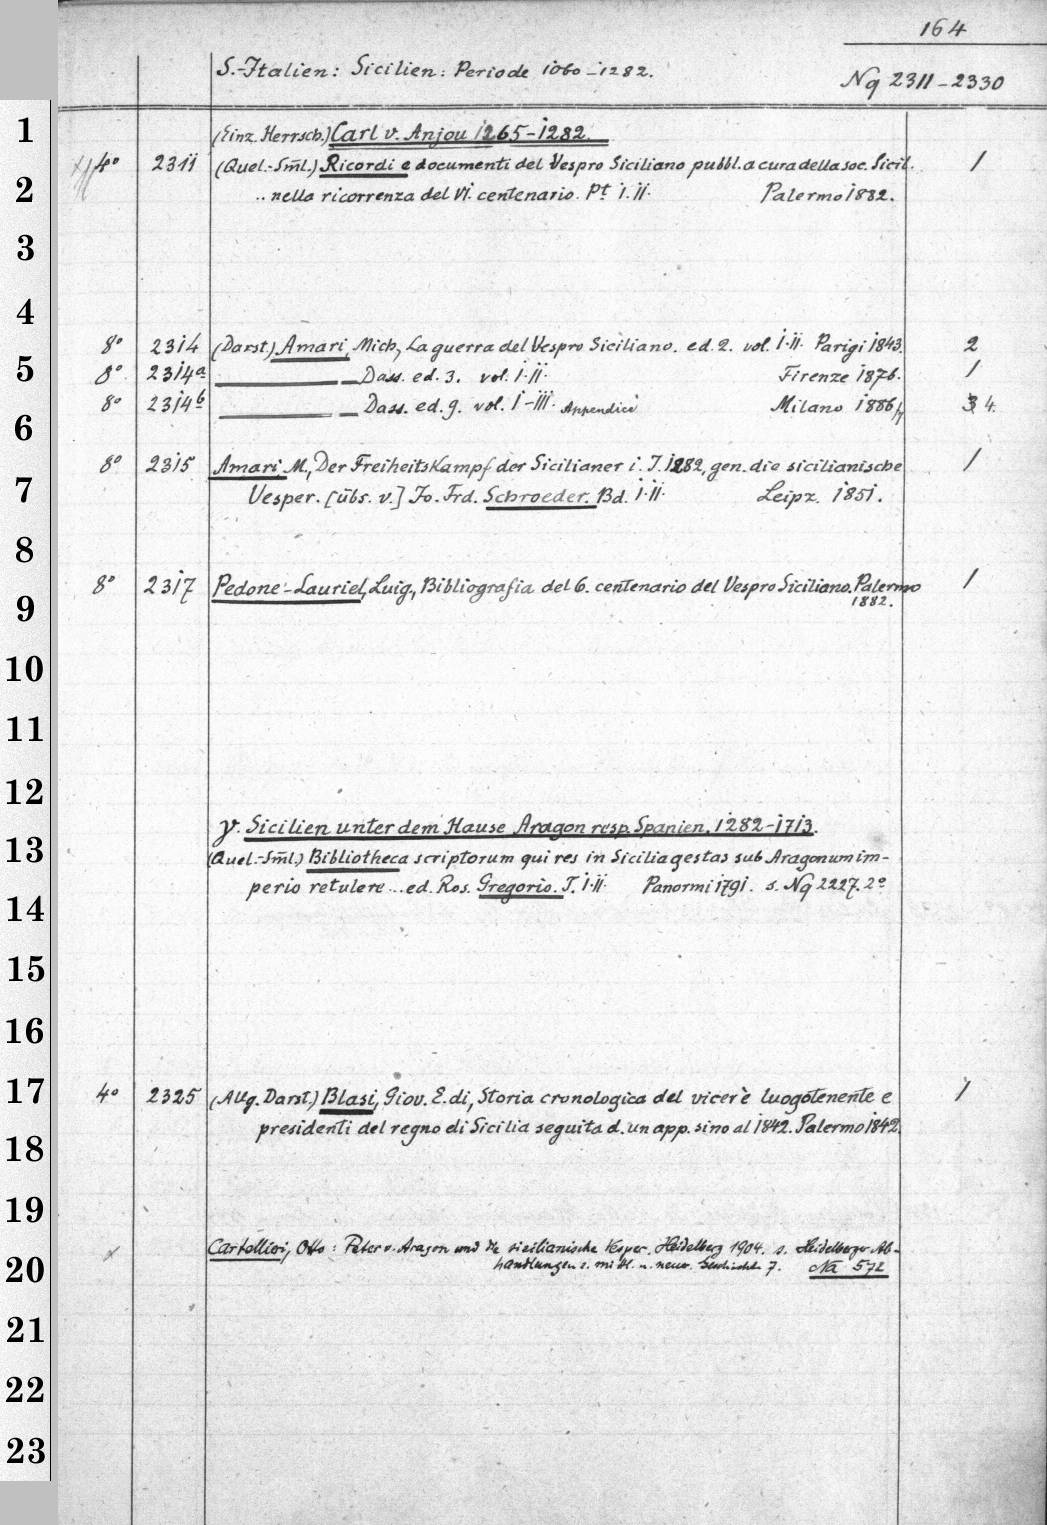 164
S.-Italien: Sicilien: Periode 1060-1282.
Nq 2311-2330
1 (Einz. Herrsch.) Carl v. Anjou 1265-1282.
4° 2311 (Quel.-Sm̄l.) Ricordi e documenti del Vespro Siciliano pubbl. a cura della soc. Sicil. 1
2 .. nella ricorrenza del VI. centenario. Pt I.II. Palermo 1882.
3
4
8° 2314 (Darst.) Amari, Mich., La guerra del Vespro Siciliano. ed. 2. vol. I.II. Parigi 1843. 2
5 8° 2314a ——— Dass. ed. 3. vol. I.II. Firenze 1876. 1
8° 2314b ——— Dass. ed. 9. vol. I-III. Appendice Milano 1886/7 3 4.
6
8° 2315 Amari, M., Der Freiheitskampf der Sicilianer i. J. 1282, gen. die sicilianische 1
7 Vesper. [übs. v.] Jo. Frd. Schroeder. Bd. I.II. Leipz. 1851.
8
8° 2317 Pedone-Lauriel, Luig., Bibliografia del 6. centenario del Vespro Siciliano. Palermo 1
9 1882.
10
11
12
γ. Sicilien unter dem Hause Aragon resp. Spanien. 1282-1713.
13 (Quel.-Sm̄l.) Bibliotheca scriptorum qui res in Sicilia gestas sub Aragonum im-
perio retulere ... ed. Ros. Gregorio. T. I.II. Panormi 1791. s. Nq 2227. 2°
14
15
16
17 4° 2325 (Allg. Darst.) Blasi, Giov. E. di, Storia cronologica del vicerè luogotenente e 1
presidenti del regno di Sicilia seguita d. un app. sino al 1842. Palermo 1842.
18
19
Cartellieri, Otto: Peter v. Aragon und die sicilianische Vesper. Heidelberg 1904. s. Heidelberger Ab-
20 handlungen z. mittl. u. neuer. Geschichte 7. Na 572
21
22
23